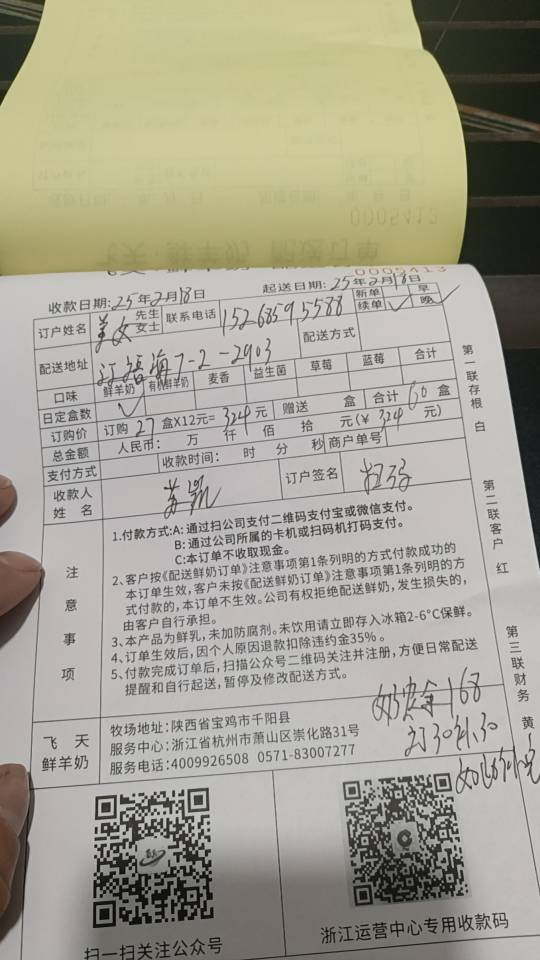 0005412
0005413
收款日期:25年2月18日 起送日期:25年2月18日
订户姓名 美女 先生 女士 联系电话 15268595588 新单 续单 ✓ 早 晚 ✓
配送地址 7-2-2903 配送方式
口味 鲜羊奶 有机鲜羊奶 麦香 益生菌 草莓 蓝莓 合计
日定盒数 ✓
订购价 订购27盒X12元=324元 赠送 盒 合计60盒
总金额 人民币: 万 仟 佰 拾 元(¥324元)
支付方式 收款时间: 时 分 秒 商户单号
收款人姓名 订户签名 扫码
注意事项
1.付款方式:A: 通过扫公司支付二维码支付宝或微信支付。
B: 通过公司所属的卡机或扫码机打码支付。
C:本订单不收取现金。
2、客户按《配送鲜奶订单》注意事项第1条列明的方式付款成功的
本订单生效,客户未按《配送鲜奶订单》注意事项第1条列明的方
式付款的,本订单不生效。公司有权拒绝配送鲜奶,发生损失的,
由客户自行承担。
3、本产品为鲜乳,未加防腐剂。未饮用请立即存入冰箱2-6°C保鲜。
4、订单生效后,因个人原因退款扣除违约金35%。
5、付款完成订单后,扫描公众号二维码关注并注册,方便日常配送
提醒和自行起送,暂停及修改配送方式。
168
订30补30
飞天鲜羊奶
牧场地址:陕西省宝鸡市千阳县
服务中心:浙江省杭州市萧山区崇化路31号
服务电话:4009926508 0571-83007277
扫一扫关注公众号
浙江运营中心专用收款码
第一联存根 白
第二联客户 红
第三联财务 黄